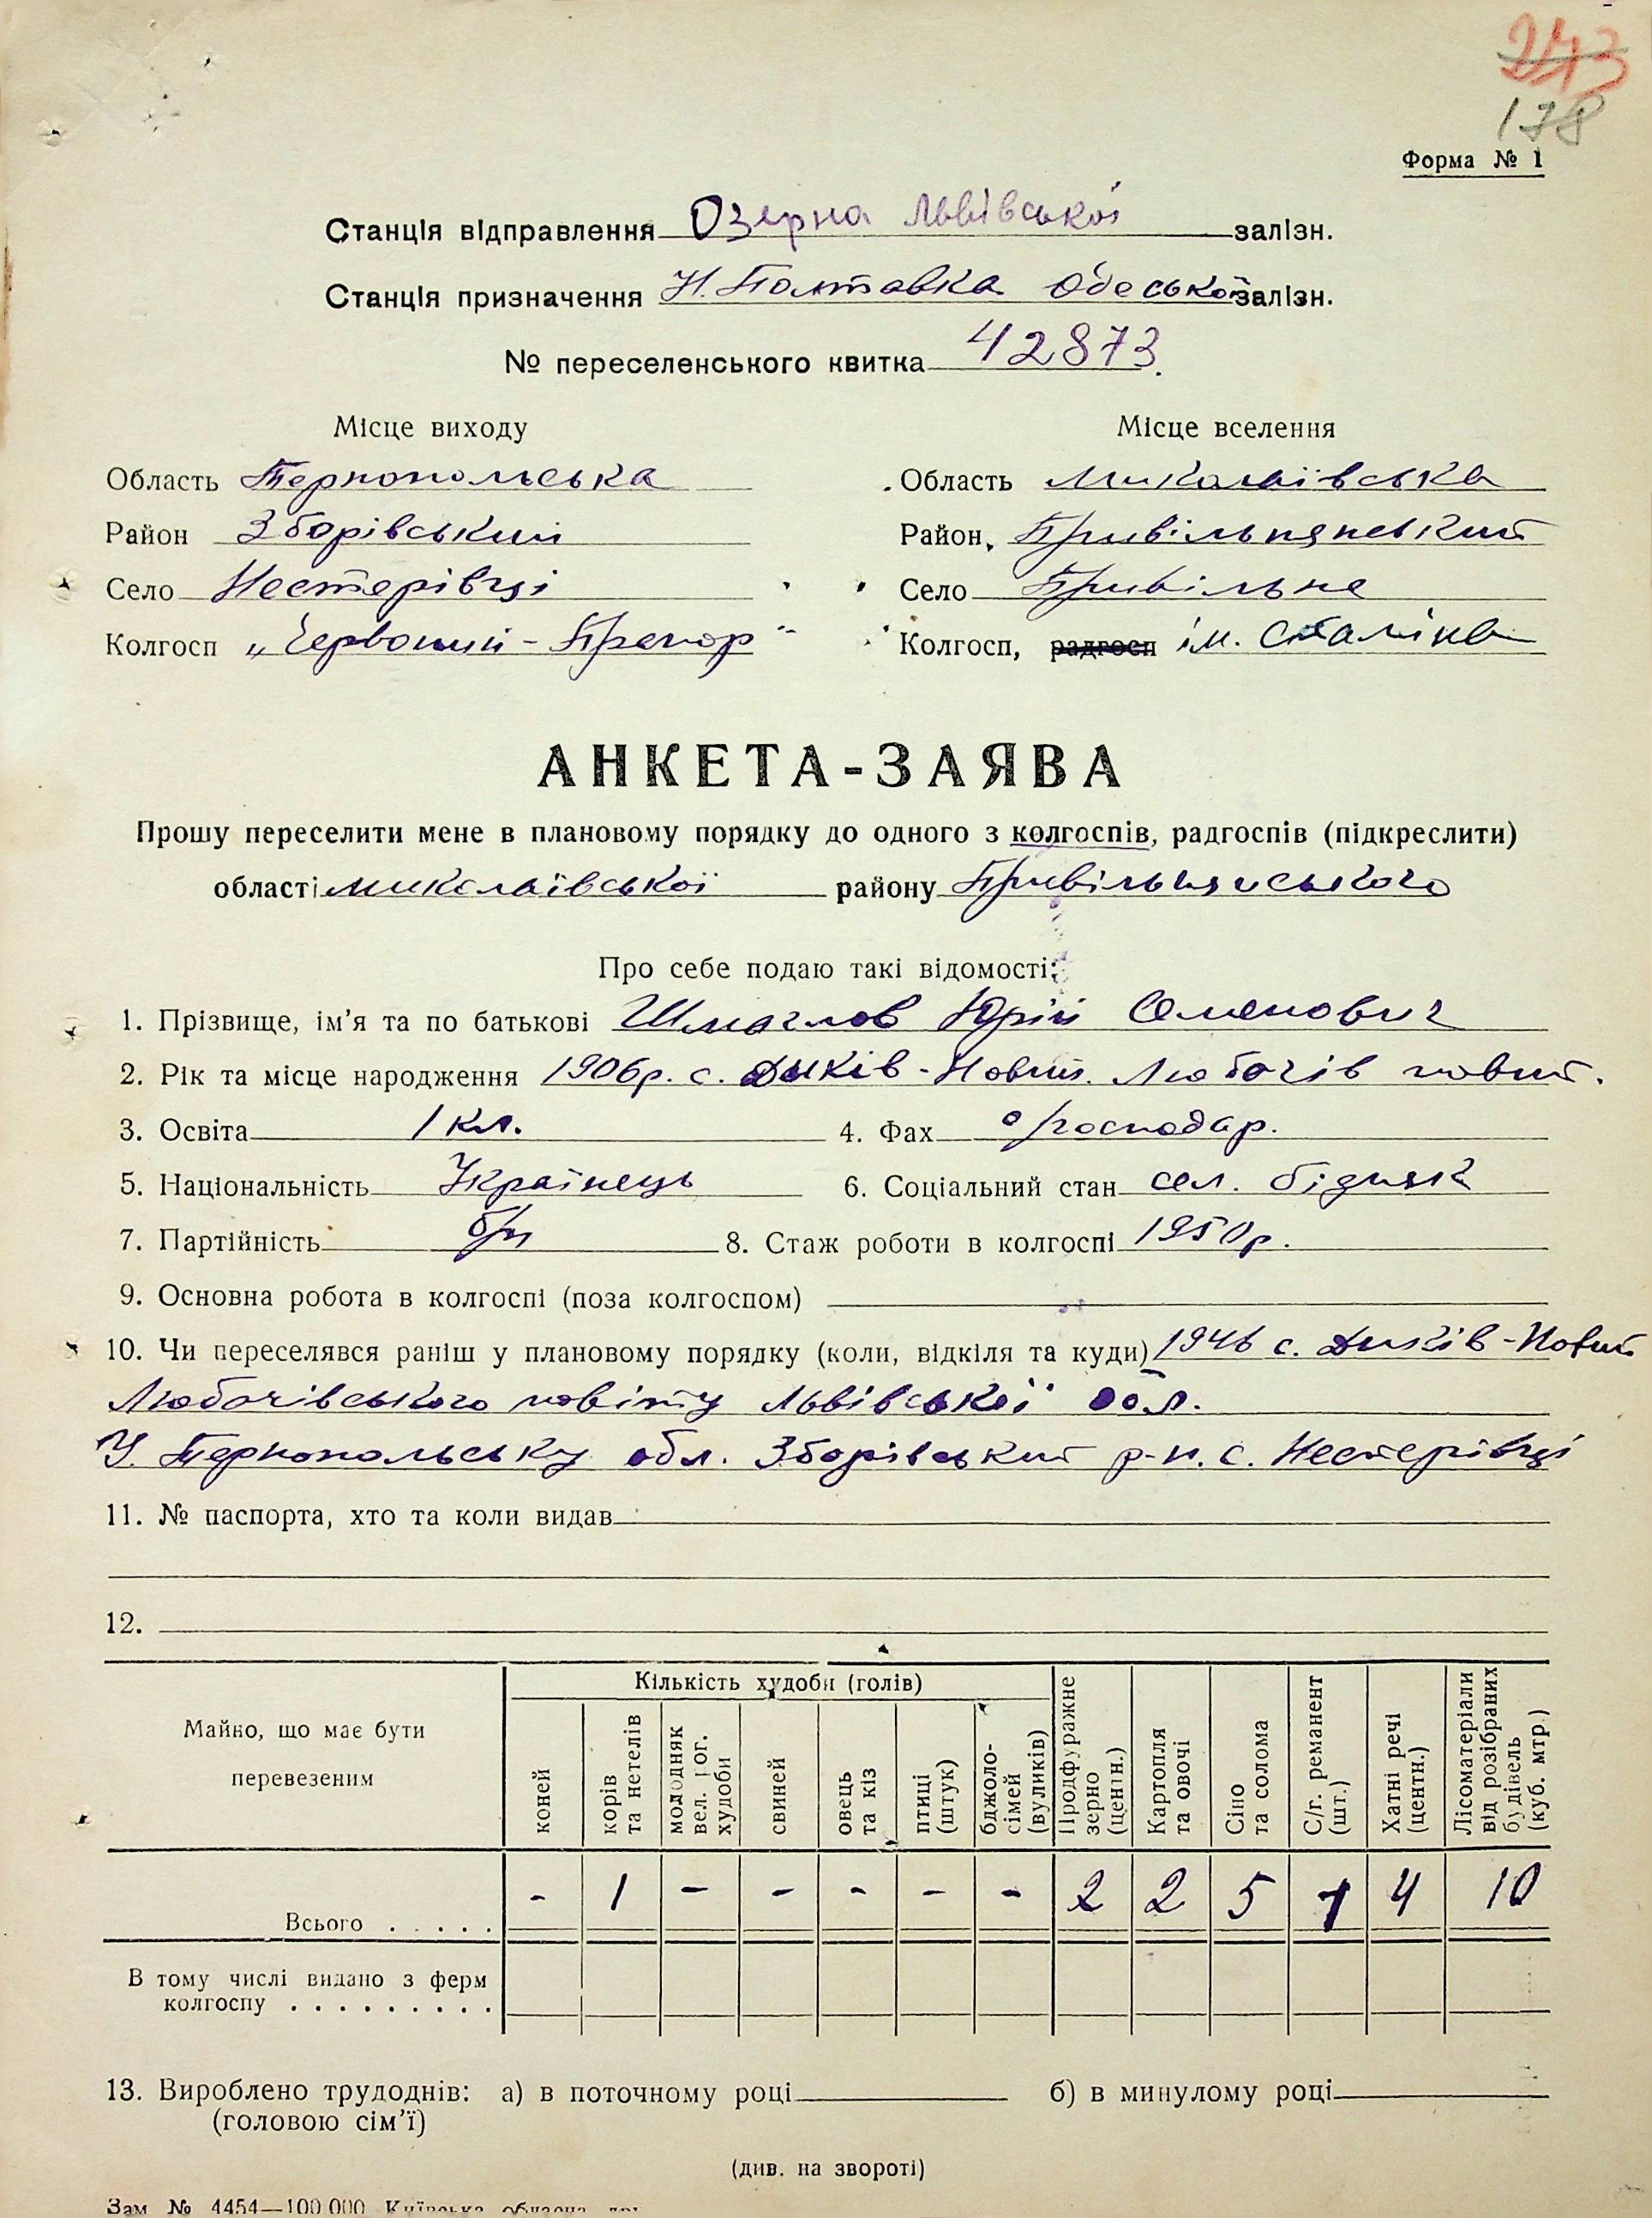 243
178
Форма № 1
Станція відправлення Озерна Львівської залізн.
Станція призначення Н. Полтавка Одеської залізн.
№ переселенського квитка 42873.
Місце виходу Місце вселення
Область Тернопольська Область Миколаївська
Район Зборівський Район, Привільнянський
Село Нестерівці Село Привільне
Колгосп „Червоний-Прапор" Колгосп, радгосп ім. Сталіна
АНКЕТА-ЗАЯВА
Прошу переселити мене в плановому порядку до одного з колгоспів, радгоспів (підкреслити)
області Миколаївської району Привільнянського
Про себе подаю такі відомості:
1. Прізвище, ім'я та по батькові Шмаглов Юрій Семенович
2. Рік та місце народження 1906р. с. Диків-Новий. Любачів повит.
3. Освіта 1 кл. 4. Фах господар.
5. Національність Українець 6. Соціальний стан сел. бідняк
7. Партійність б/п 8. Стаж роботи в колгоспі 1950р.
9. Основна робота в колгоспі (поза колгоспом)
10. Чи переселявся раніш у плановому порядку (коли, відкіля та куди) 1946 с. Диків-Новий
Любачівського повіту Львівської обл.
У Тернопольську обл. Зборівський р-н. с. Нестерівці
11. № паспорта, хто та коли видав
12.
Майно, що має бути перевезеним
Кількість худоби (голів)
коней
корів та нетелів
молодняк вел. рог. худоби
свиней
овець та кіз
птиці (штук)
бджоло-сімей (вуликів)
Продфуражне зерно (центн.)
Картопля та овочі
Сіно та солома
С/г. реманент (шт.)
Хатні речі (центн.)
Лісоматеріали від розібраних будівель (куб. мтр.)
Всього . . . . . - 1 - - - - - 2 2 5 1 4 10
В тому числі видано з ферм
колгоспу . . . . . . . . .
13. Вироблено трудоднів: а) в поточному році б) в минулому році
(головою сім'ї)
(див. на звороті)
Зам № 4454—100.000 Київська обласна